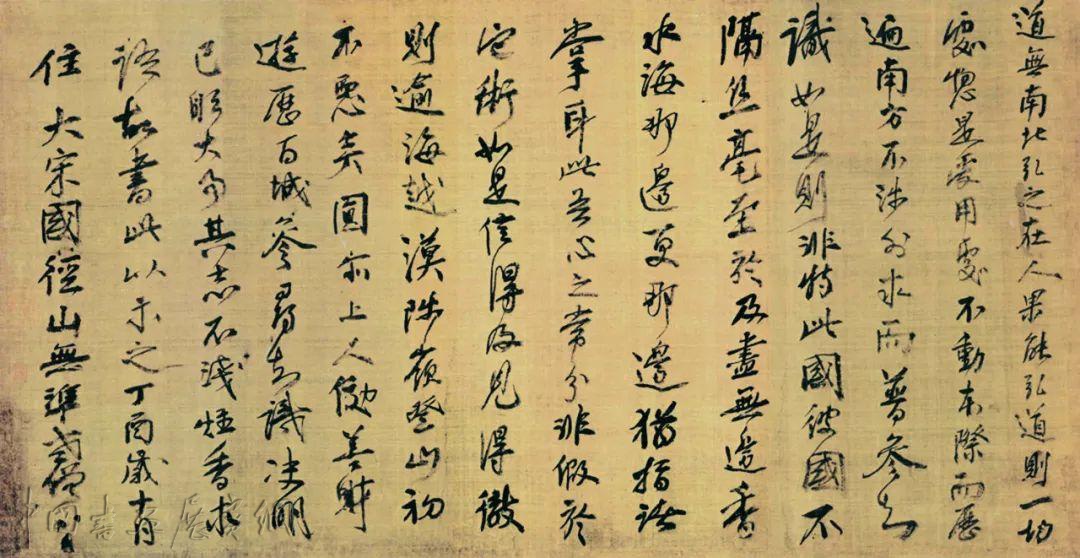 道無南北弘之在人果能弘道則一切
處惣是受用處不動本際而歷
遍南方不涉外求而普參知
識如是則非特此國彼國不
隔絲毫至於及盡無邊香
水海那邊更那邊猶指諸
掌耳此吾心之常分非假於
它術如是信得及見得徹
則逾海越漠陟嶺登山初
不惡矣圓爾上人効善財
遊歷百城參尋知識決明
己躬大事其志不淺炷香求
語故書此以示之丁酉歲十月
住大宋國徑山無準老僧